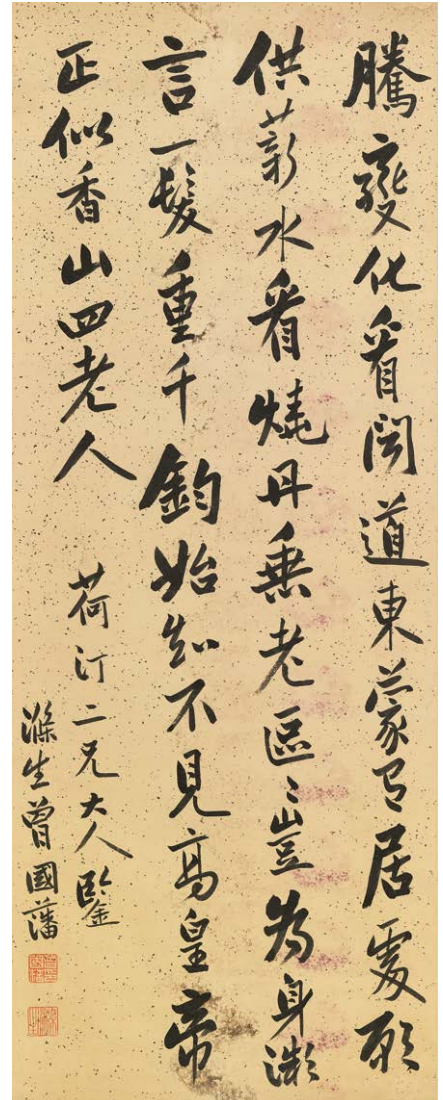 騰變化看閱道東蒙有居處願
供薪水看燒丹垂老區〻豈為身微
言一髮重千鈞始知不見高皇帝
正似香山四老人
荷汀二兄大人鑒
滌生曾國藩